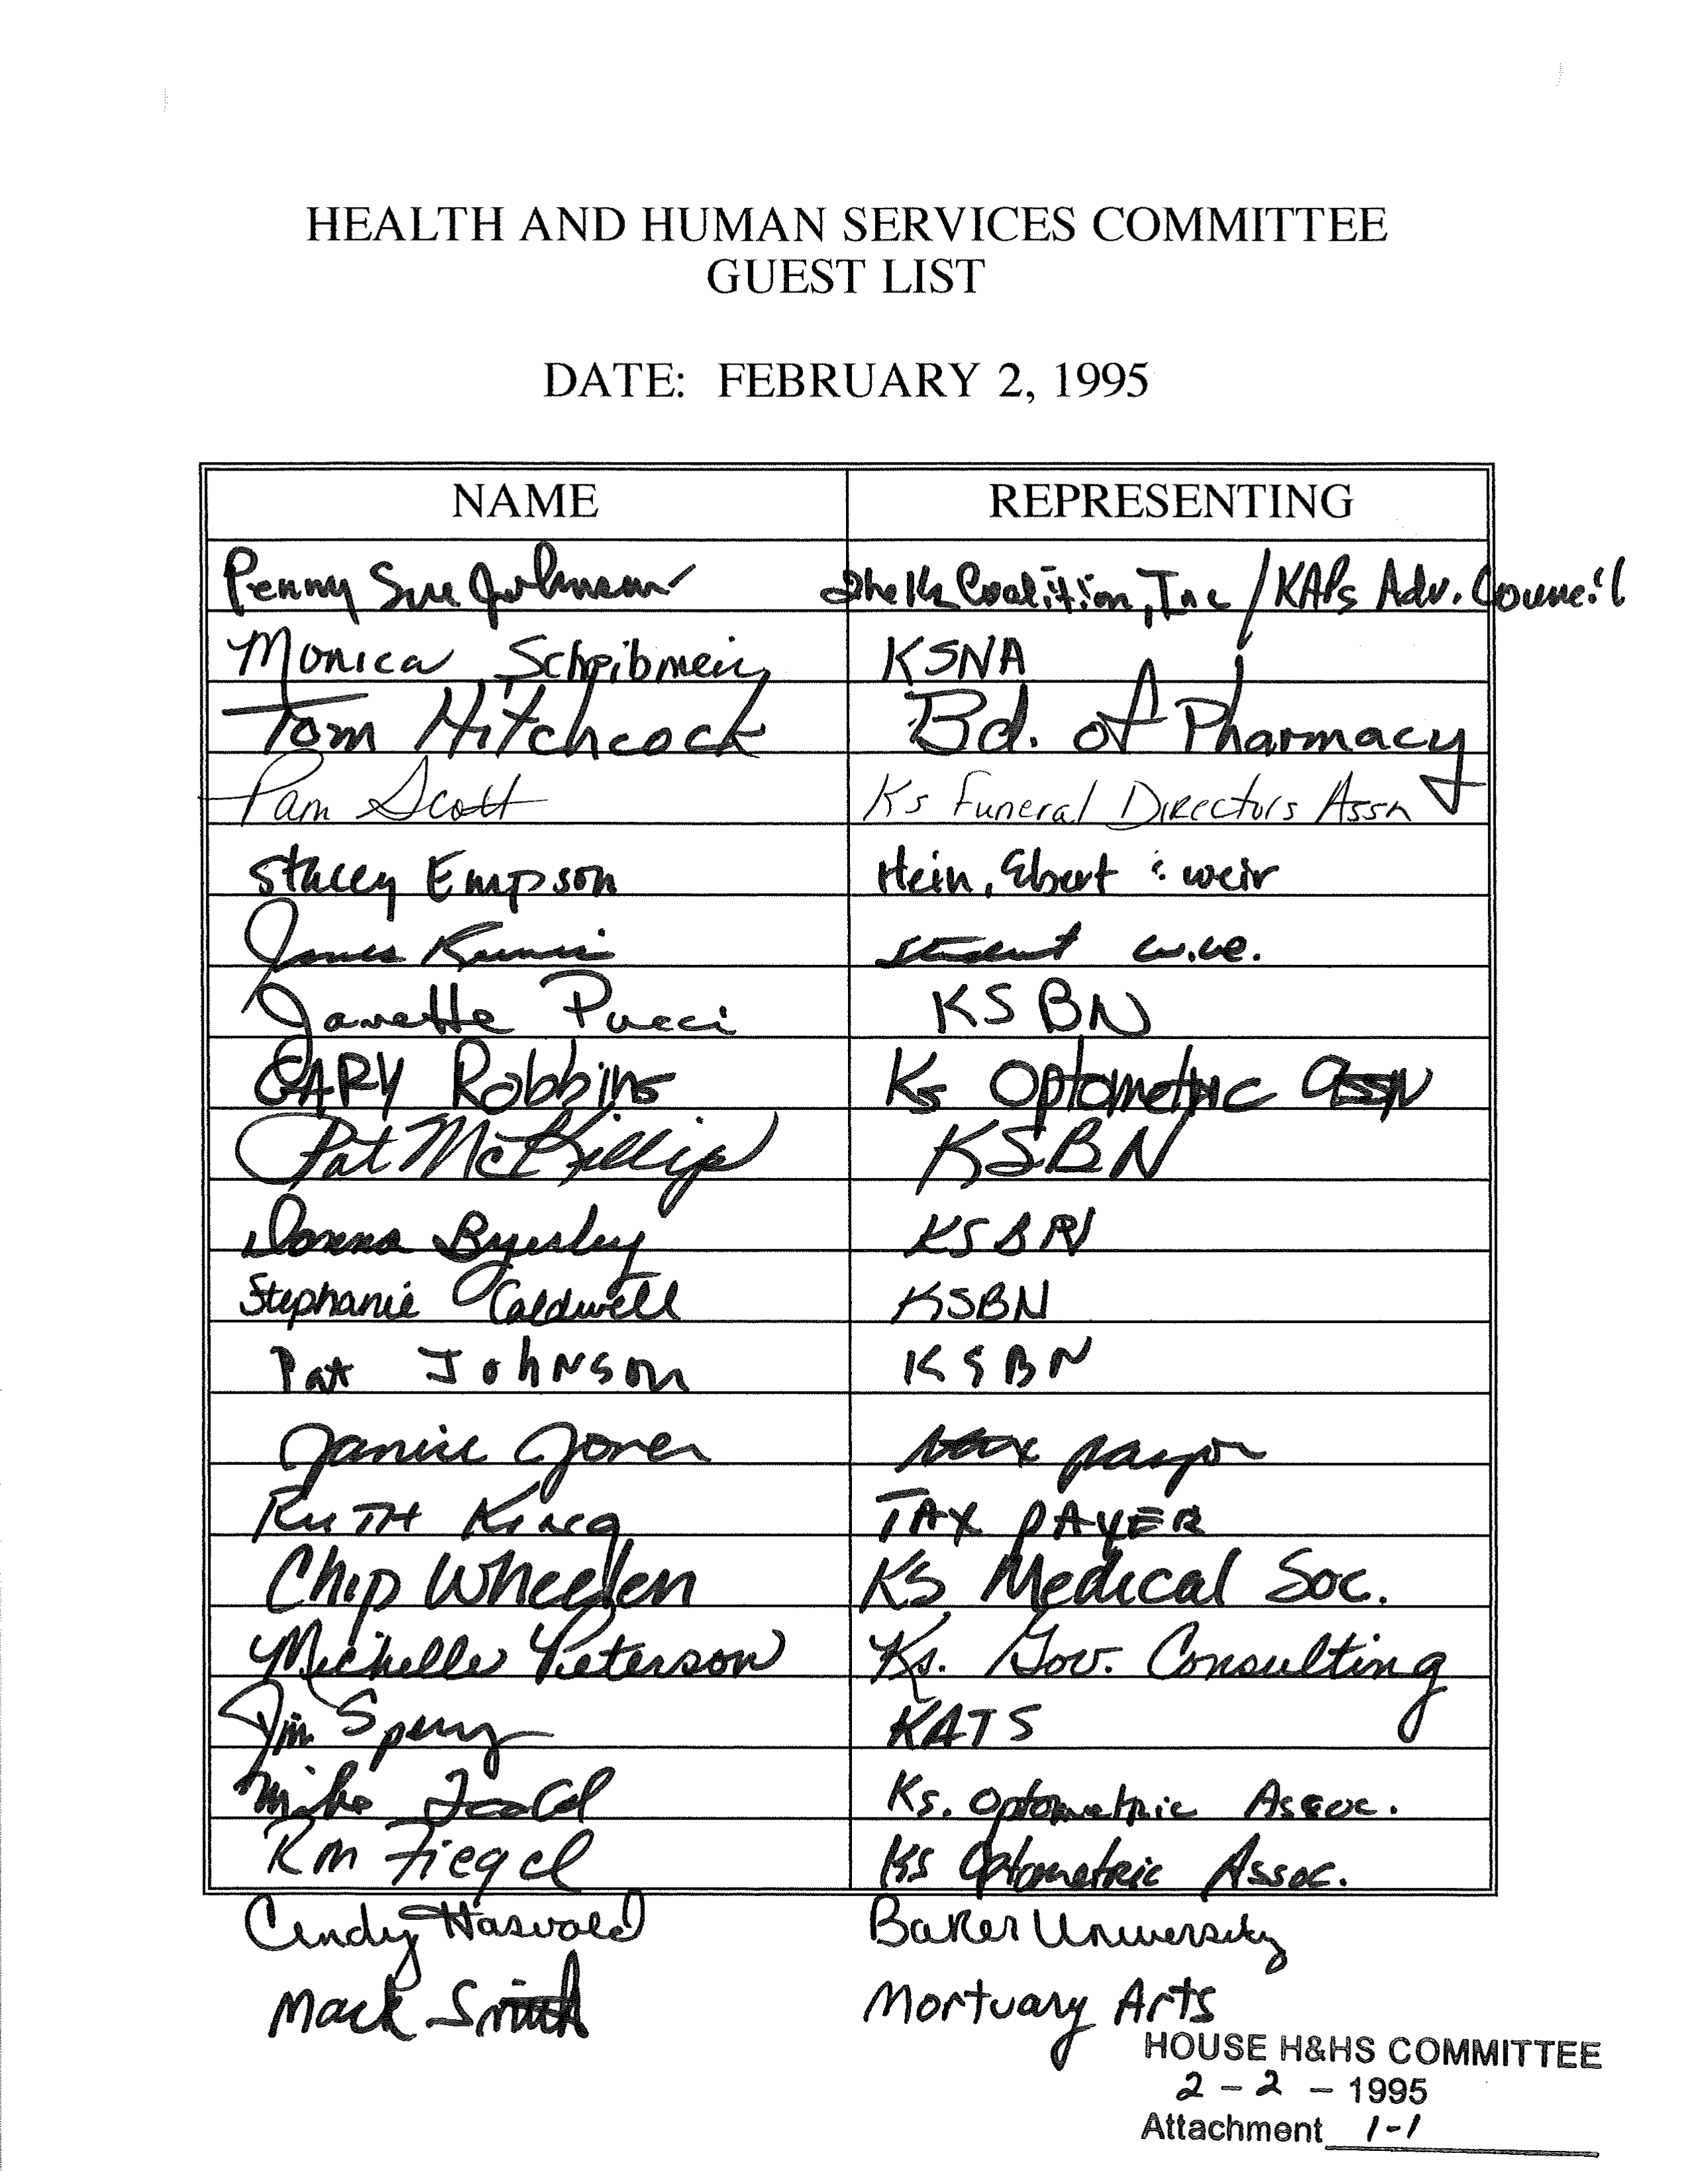 HEALTH AND HUMAN SERVICES COMMITTEE
GUEST LIST
DATE: FEBRUARY 2, 1995
NAME REPRESENTING
Penny Sue Johnson The Ks Coalition, Inc / KAPs Adv. Council
Monica Scheibmeir KSNA
Tom Hitchcock Bd. of Pharmacy
Pam Scott Ks Funeral Directors Assn
Stacey Empson Hein, Ebert & Weir
James student
Janette Pucci KSBN
GARY Robbins Ks Optometric assn
Pat McKillip KSBN
Donna Byerley KSBN
Stephanie Caldwell KSBN
Pat Johnson KSBN
Janice Jones tax payor
RUTH King TAX PAYER
Chip Wheelen KS Medical Soc.
Michelle Peterson Ks. Gov. Consulting
Jim Sperry KATS
Mike Ks. Optometric Assoc.
Ron Fiegel Ks Optometric Assoc.
Cindy Baker University
Mack Smith Mortuary Arts
HOUSE H&HS COMMITTEE
2 - 2 - 1995
Attachment 1-1